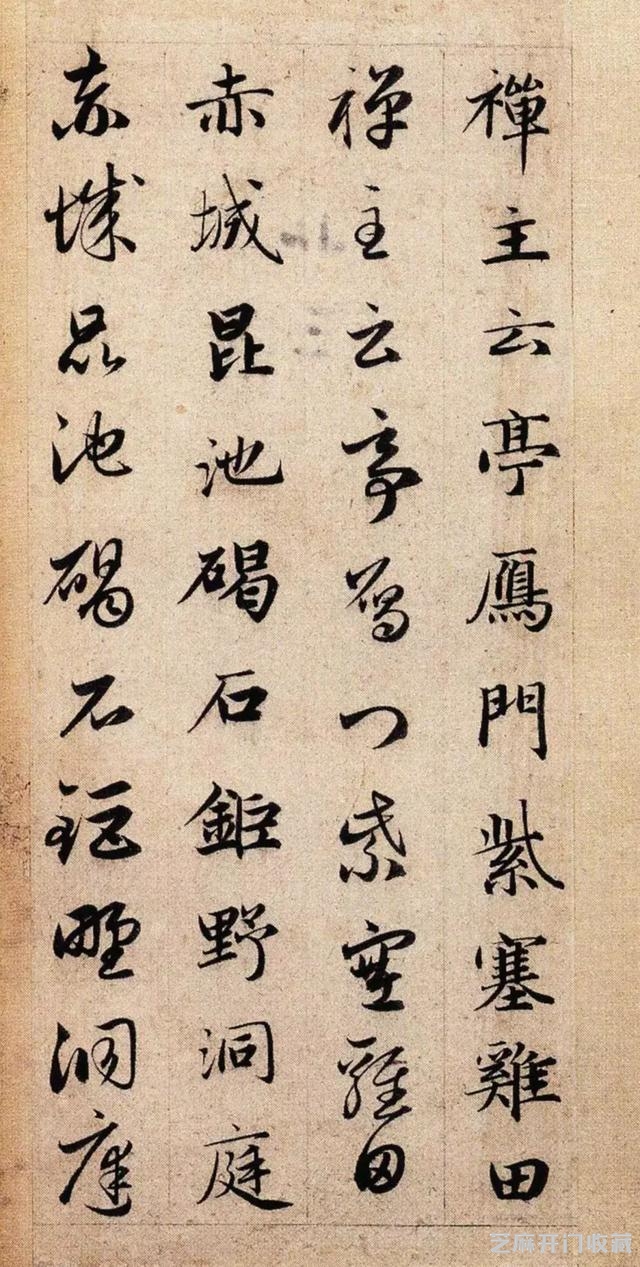 禪主云亭鴈門紫塞雞田
禅主云亭鴈门紫塞雞田
赤城昆池碣石鉅野洞庭
赤城昆池碣石鉅野洞庭
芝麻开门收藏